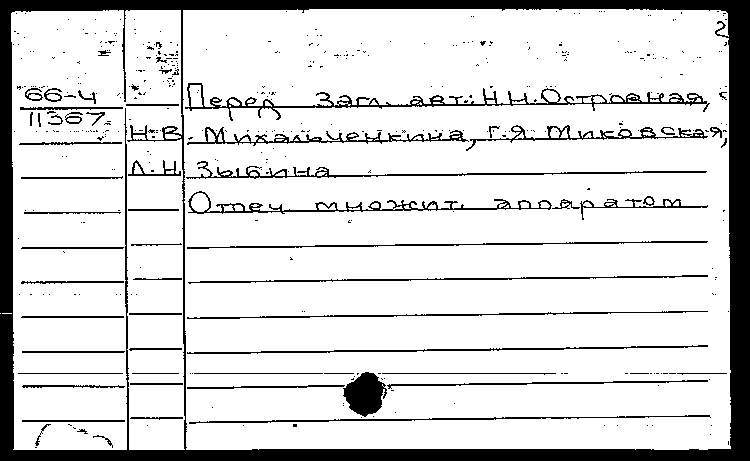 2
66-4 Перед загл. авт.: Н.Н. Островная,
11367 Н.В. Михальченкина, Г.Я. Миковская,
Л.Н. Зыбина
Отпеч множит. аппаратом